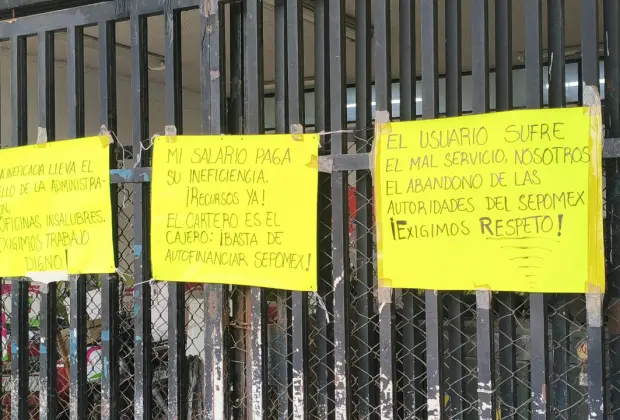 A INEFICACIA LLEVA EL
ELLO DE LA ADMINISTRA-
ÓN.
OFICINAS INSALUBRES.
EXIGIMOS TRABAJO
DIGNO!
MI SALARIO PAGA
SU INEFICIENCIA.
¡RECURSOS YA!
EL CARTERO ES EL
CAJERO: ¡BASTA DE
AUTOFINANCIAR SEPOMEX!
EL USUARIO SUFRE
EL MAL SERVICIO, NOSOTROS
EL ABANDONO DE LAS
AUTORIDADES DEL SEPOMEX
¡EXIGIMOS RESPETO!